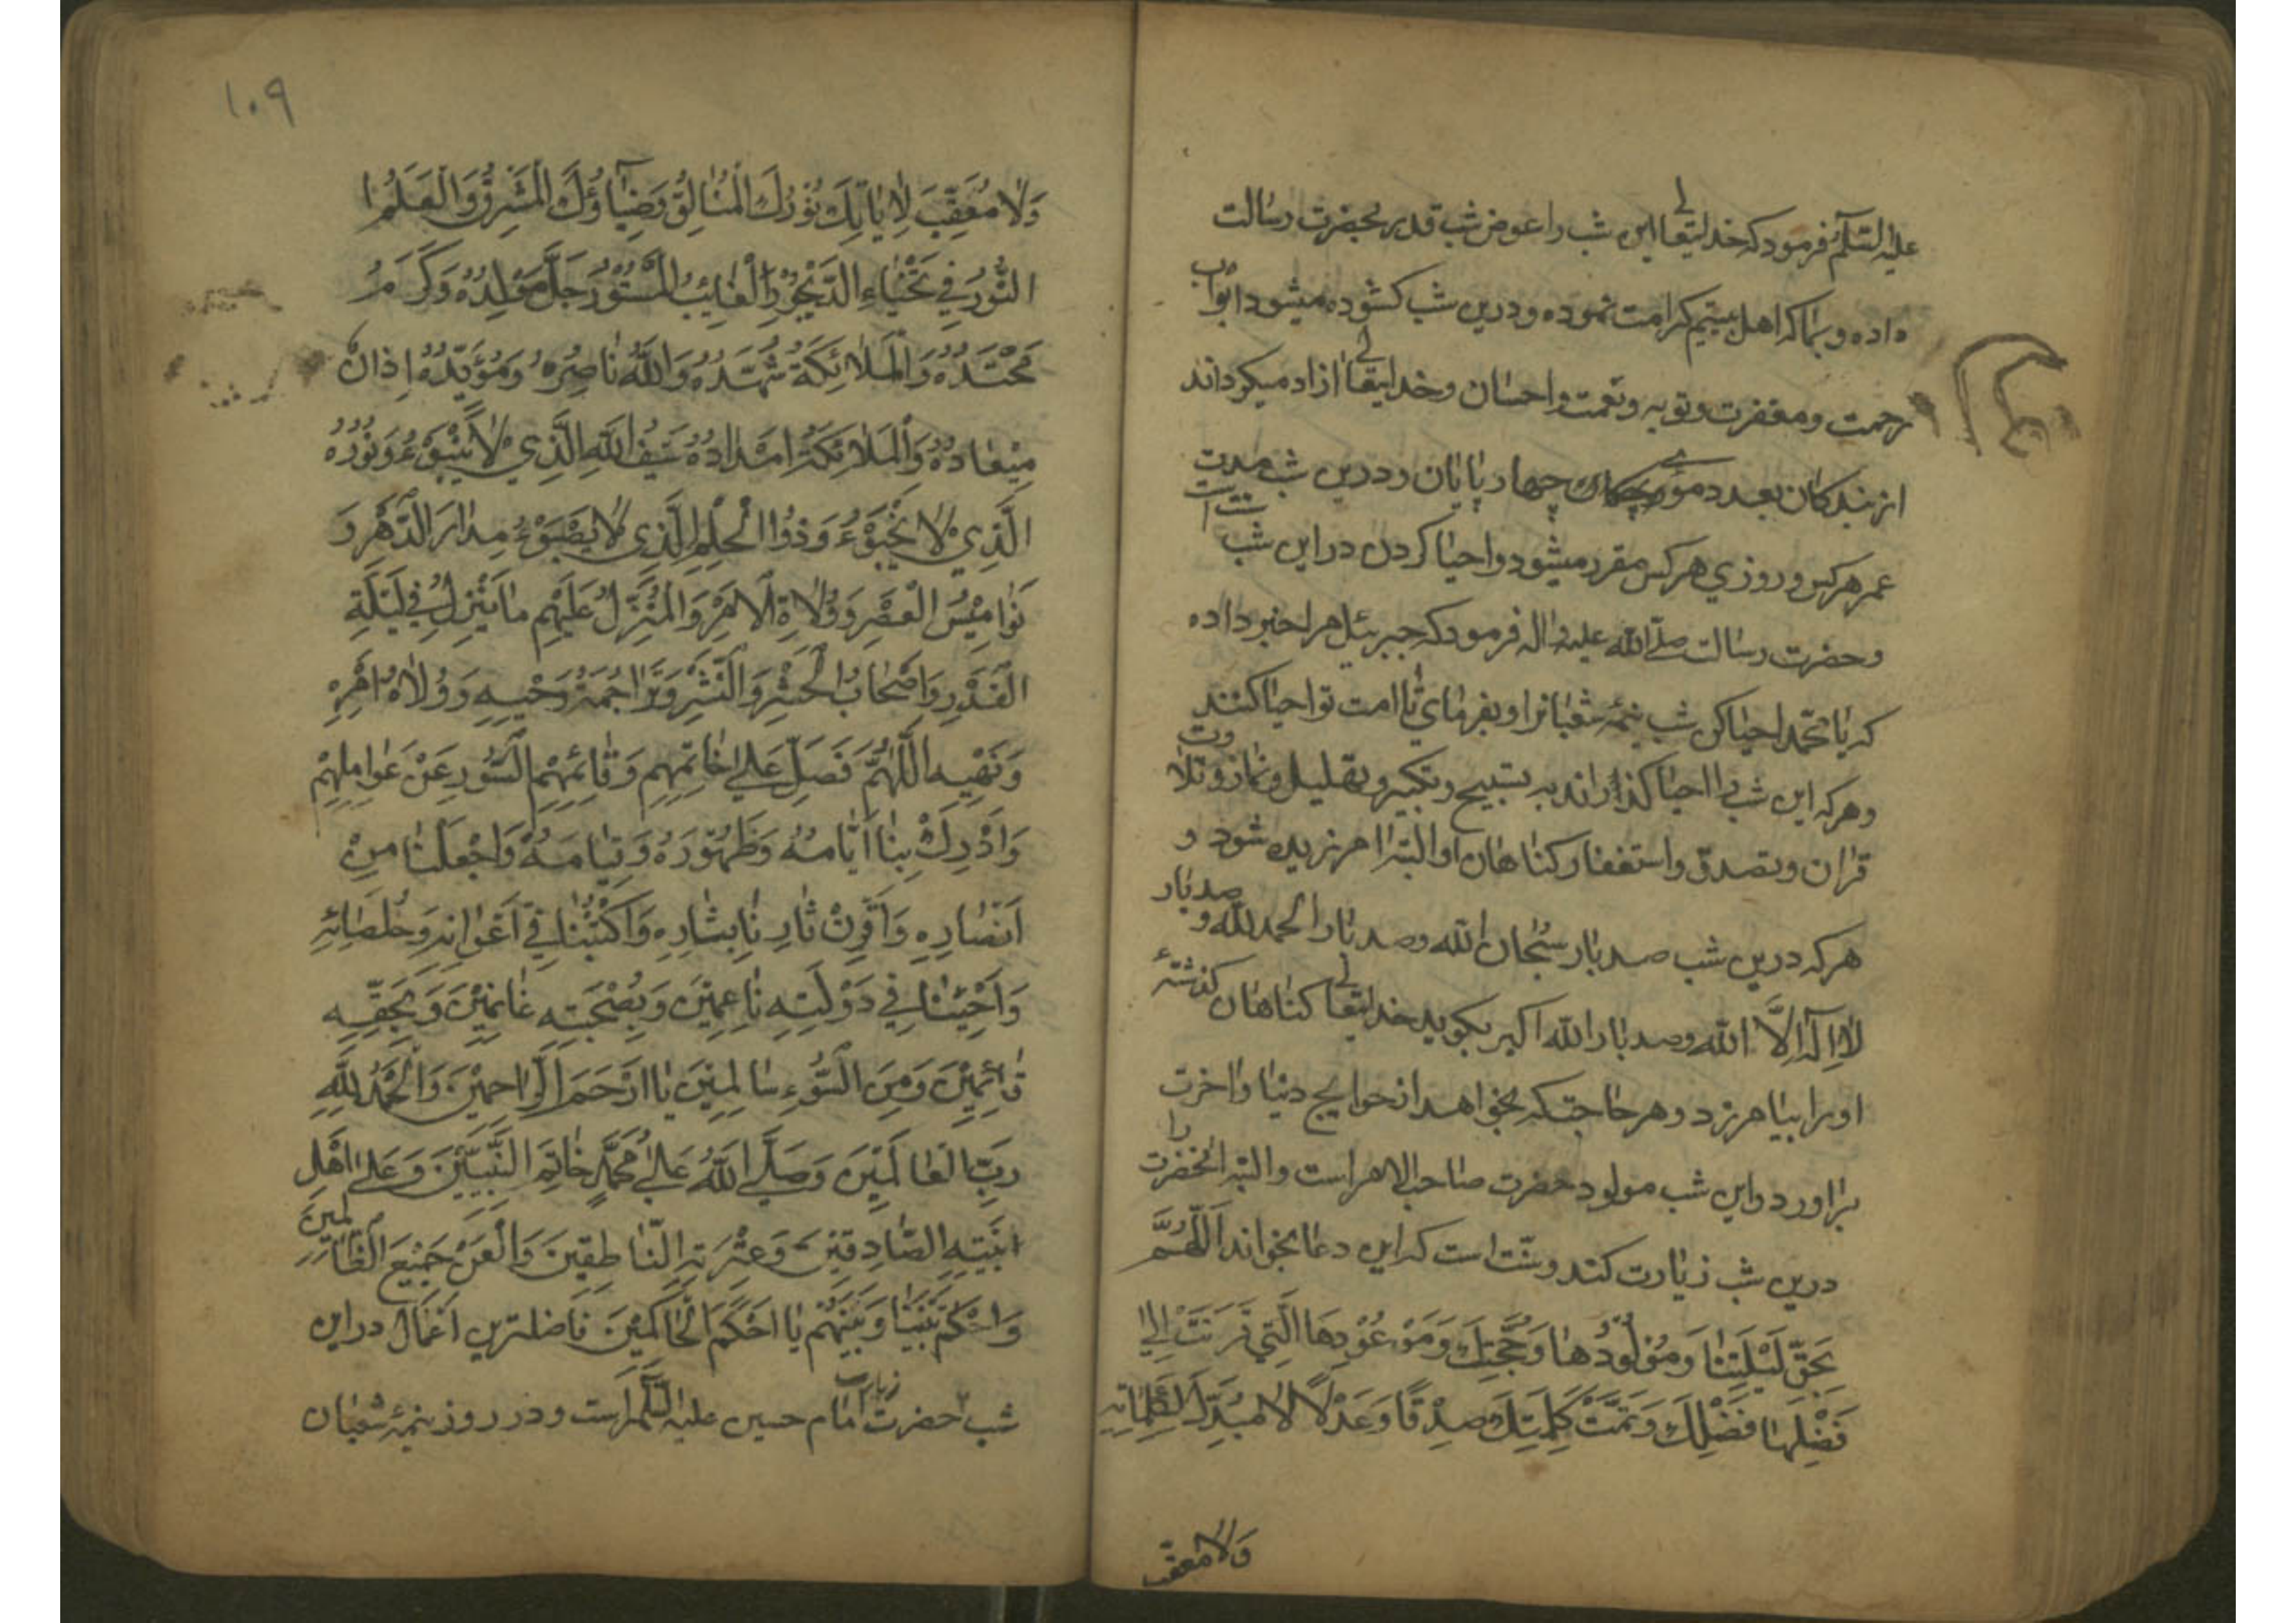 علیه السّلم فرمود که خدایتعالی این شب را عوض شب قدر بحضرت رسالت
داده و بما که اهل بیتیم کرامت نموده و درین شب کشوده میشود ابواب
رحمت و مغفرت و توبه و نعمت و احسان و خدایتعالی ازاد میکرداند
از بندکان بعدد موی چهارپایان و درین شب مدت
عمر هرکس و روزی هرکس مقرر میشود و احیا کردن در این شب سنت است
و حضرت رسالت صلّی الله علیه واله فرمود که جبرئیل مرا خبر داده
که یا محمّد احیا کن شب نیمهٔ شعبانرا و بفرمای تا امت تو احیا کنند
و هرکه این شب را احیا کذراند به تسبیح و تکبیر و تهلیل و نماز و تلاوت
قران و تصدق و استغفار کناهان او البته امرزیده شود و
هرکه درین شب صد بار سبحان الله و صد بار الحمد لله و صد بار
لا اله الّا الله و صد بار الله اکبر بکوید خدایتعالی کناهان کذشتهٔ
اورا بیامرزد و هر حاجتکه بخواهد از حوایج دنیا و اخرت
براورد و این شب مولود حضرت صاحب الامر است و البته انحضرت را
درین شب زیارت کند و سنّت است که این دعا بخواند اَللّهُمَّ
بِحَقِّ لَیْلَتِنٰا وَمَوْلُودِهٰا وَحُجَّتِكَ وَمَوْعُوْدِهَا الَّتِي قَرَنْتَ اِلیٰ
فَضْلِهٰا فَضْلِكَ وَتَمَّتْ كَلِمَتِكَ صِدْقًا وَعَدْلًا لٰا مُبَدِّلَ لِكَلِمٰاتِه
وَلٰا مُعَقِّب
۱۰۹
وَلٰا مُعَقِّبَ لِاٰیٰاتِكَ نُوْرُكَ الْمُتَاَلِّقُ وَضِیٰآؤُكَ الْمُشْرِقُ وَالْعَلَمُ ا
النُّوْرُ فِي طَخْیٰاءِ الدَّیْجُوْرِ الْغٰایِبُ الْمَسْتُوْرُ جَلَّ مَوْلِدُهُ وَكَرُمَ
مَحْتَدُهُ وَالْمَلٰائِكَةُ شُهَّدُهُ وَاللّٰهُ نٰاصِرُهُ وَمُؤَیِّدُهُ اِذٰا آنَ
مِیْعٰادُهُ وَالْمَلٰائِكَةُ اَمْدٰادُهُ سَیْفُ اللّٰهِ الَّذِي لٰا یَنْبُوْءُ وَنُوْرُهُ
الَّذِي لٰا یَخْبُوْءُ وَذُوا الْحِلْمِ الَّذِي لٰا یَصْبُوْءُ مِدٰارَ الدَّهْرِ وَ
نَوٰامِیْسُ الْعَصْرِ وَوُلٰاةِ الْاَمْرِ وَالْمُنَزَّلُ عَلَیْهِمْ مٰا یَنْزِلُ فِي لَیْلَةِ
الْقَدْرِ وَاَصْحٰابُ الْحَشْرِ وَالنَّشْرِ وَتَرٰاجُمَةُ وَحْیِهِ وَوُلٰاةُ اَمْرِهِ
وَنَهْیِهِ اَللّٰهُمَّ فَصَلِّ عَلیٰ خٰاتِمِهِم وَقٰائِمِهِمُ الْمَسْتُورِ عَنْ عَوٰالِمِهِمْ
وَاَدْرِكْ بِنٰا اَیّٰامَهُ وَظُهُوْرَهُ وَقِیٰامَهُ وَاجْعَلْنٰا مِنْ
اَنْصٰارِهِ وَاَقْرِنْ ثٰارِنٰا بِثٰارِهِ وَاكْتُبْنٰا فِي اَعْوٰانِهِ وَخُلَصٰائِهِ
وَاَحْیِنٰا فِي دَوْلَتِهِ نٰاعِمِیْنَ وَبِصُحْبَتِهِ غٰانِمِیْنَ وَبِحَقِّهِ
قٰائِمِیْنَ وَمِنَ السُّوْءِ سٰالِمِیْنَ یٰا اَرْحَمَ الرّٰاحِمِیْنَ وَالْحَمْدُ لِلّٰهِ
رَبِّ الْعٰالَمِیْنَ وَصَلَّی اللّٰهُ عَلیٰ مُحَمَّدٍ خٰاتِمِ النَّبِیِّیْنَ وَعَلیٰ اَهْلِ
بَیْتِهِ الصّٰادِقِیْنَ وَعِتْرَتِهِ النّٰاطِقِیْنَ وَالْعَنْ جَمِیْعَ الظّٰالِمِیْنَ
وَاحْكُمْ بَیْنَنٰا وَبَیْنَهُمْ یٰا اَحْكَمَ الْحٰاكِمِیْنَ فاضلترین اعمال در این
شب زیارت حضرت امام حسین علیه السّلم است و در روز نیمهٔ شعبان